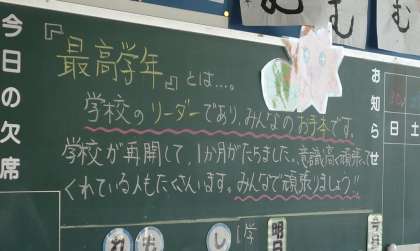 今日の欠席
『最高学年』とは…。
学校のリーダーであり、みんなのお手本です。
学校が再開して、1か月がたちました。意識高く頑張って
くれている人もたくさんいます。みんなで頑張りましょう!!
お知らせ
日 土
む
む
れ
し
明日